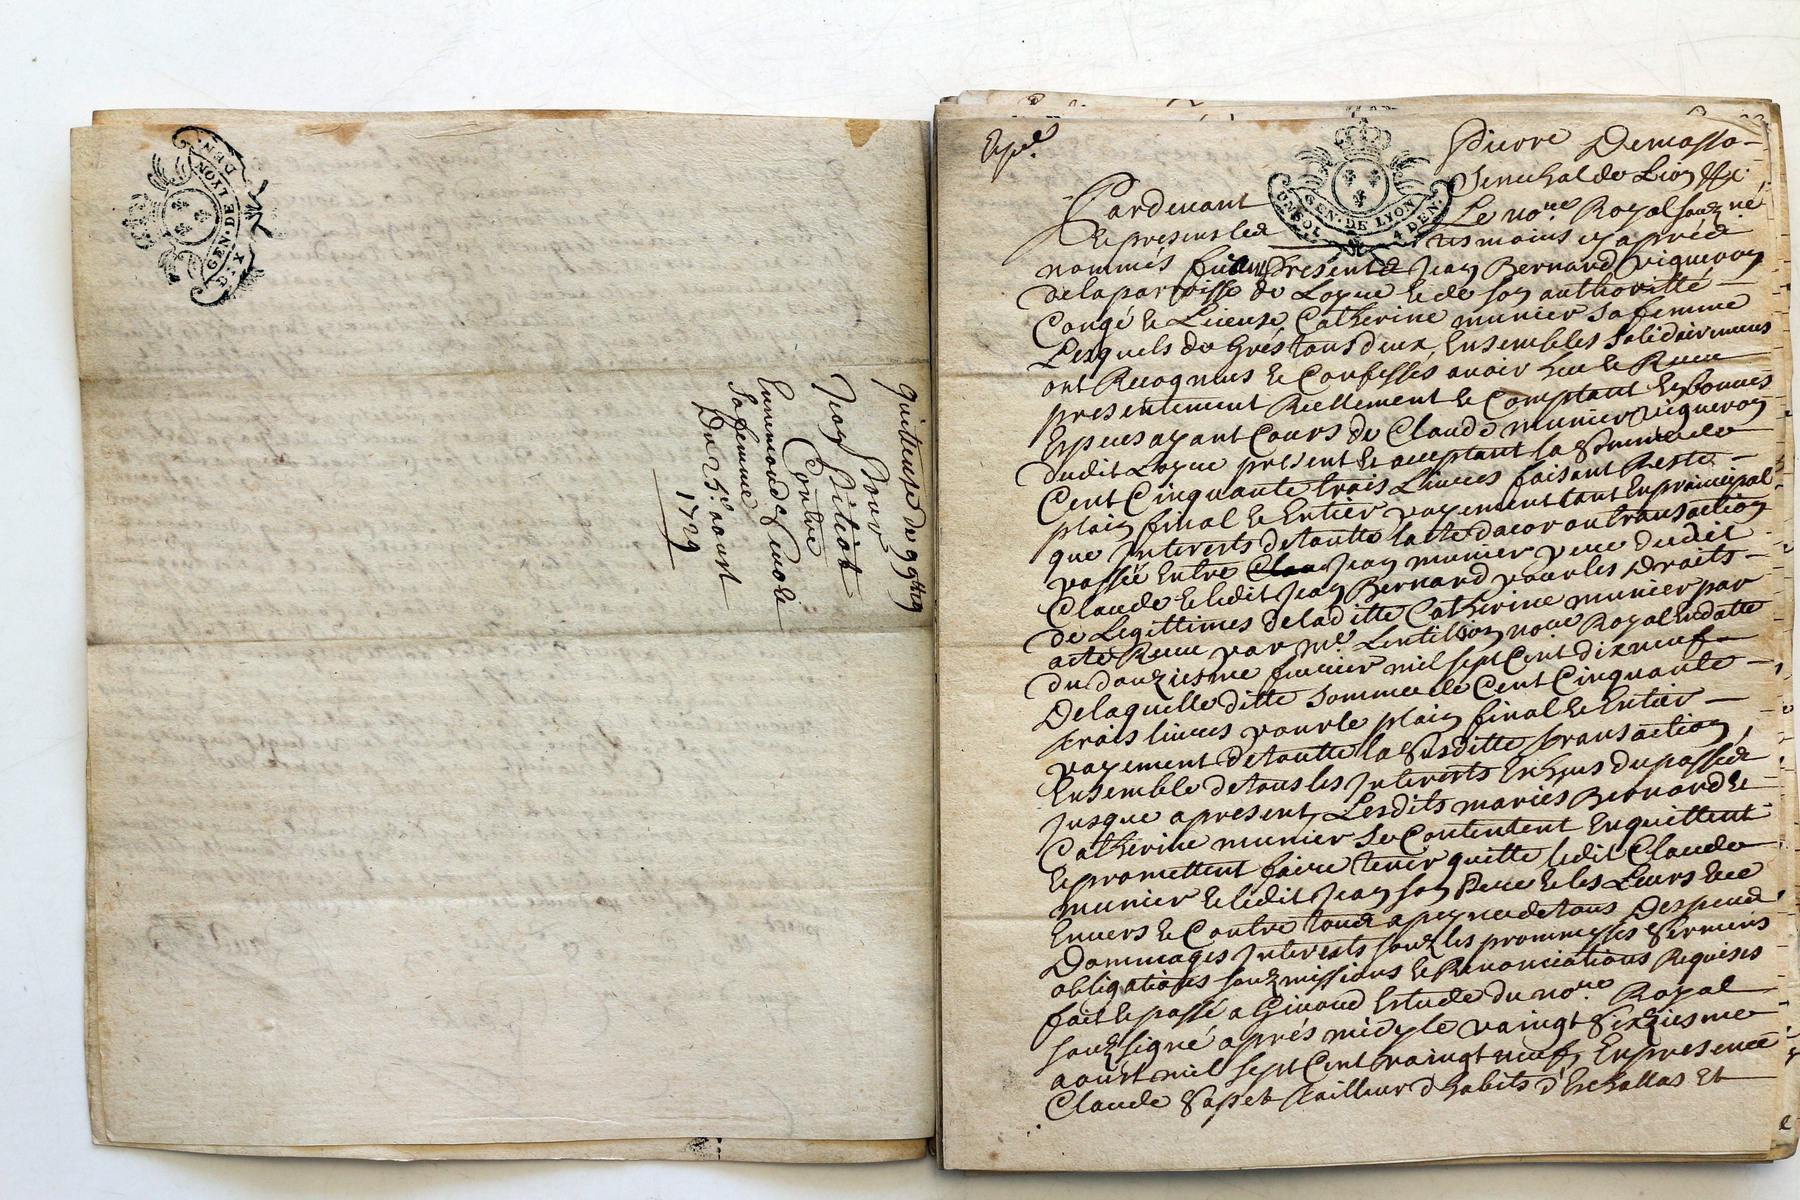 GEN. DE LYON
DIX DEN.
Quittence de 99#19
Pour
Jean Pitiot
Contre
Ennemond
Sa femme
Du 25e aoust
1729
GEN. DE LYON
UN SOL 4 DEN.
Expéd
Pierre Demasso
Senechal de Lion &c
Pardevant Le nore Royal souzné
Et presens led tesmoins cy aprés
nommés fu presents Jean Bernard vigneron
de la parroisse de Loyre et de son authoritté
Congé et License Catherine munier sa femme
Lesquels de Grés tous deux Ensembles Solidairemens
ont Recognus et Confessés avoir heu et Receu
presentement Reellement et Comptant En bonnes
Especes ayant Cours de Claude munier vigneron
dudit Loyre present et acceptant la Somme de
Cent Cinquante trois Livres faisant Reste
plain final et Entier payement tant En principal
que Interests de toutte la ditte transaction
passée Entre Jean munier pere dudit
Claude et ledit Jean Bernard pour les Droits
de Legittimes de laditte Catherine munier par
acte Receu par me Lentillon nore Royal En datte
du douziesme fevrier mil sept Cent dix neuf
De laquelle ditte Somme de Cent Cinquante
trois livres pour le plain final et Entier
payement de toutte la Susditte transaction
Ensemble de tous les Interests Enhus du passée
Jusque apresent, Lesdits mariés Bernard et
Catherine munier Se Contentent En quittent
et promettent faire tenir quitte ledit Claude
munier et ledit Jean son Pere et les Leurs
Envers et Contre tous a peyne de tous Despens
Dommages Interests souz les prommesses Sermens
obligations souzmissions et Renonciations Requises
fait et passé a Givord Estude du nore Royal
souzsigné aprés midy le vaingt Sixziesme
aoust mil sept Cent vaingt neuf, En presence
Claude Tailleur d'habits d'Echallas Et